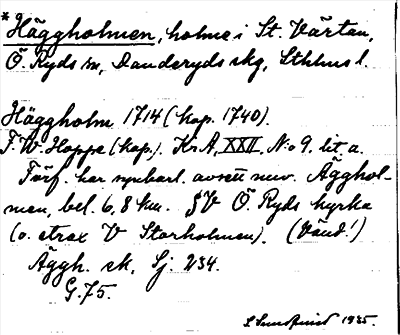 * Häggholmen, holme i St. Värtan,
Ö. Ryds sn, Danderyds skg, Sthlms l.
Häggholm 1714 (kop. 1740).
F. W. Hoppe (kop.). Kr A, XXII. N:o 9. lit a.
Förf. har uppenbarl. avsett nuv. Ägghol-
men, bel. 6,8 km. SV Ö. Ryds kyrka
(o. strax V Storholmen). (Vänd!)
Äggh. sk. Sj. 234.
G. 75.
1935